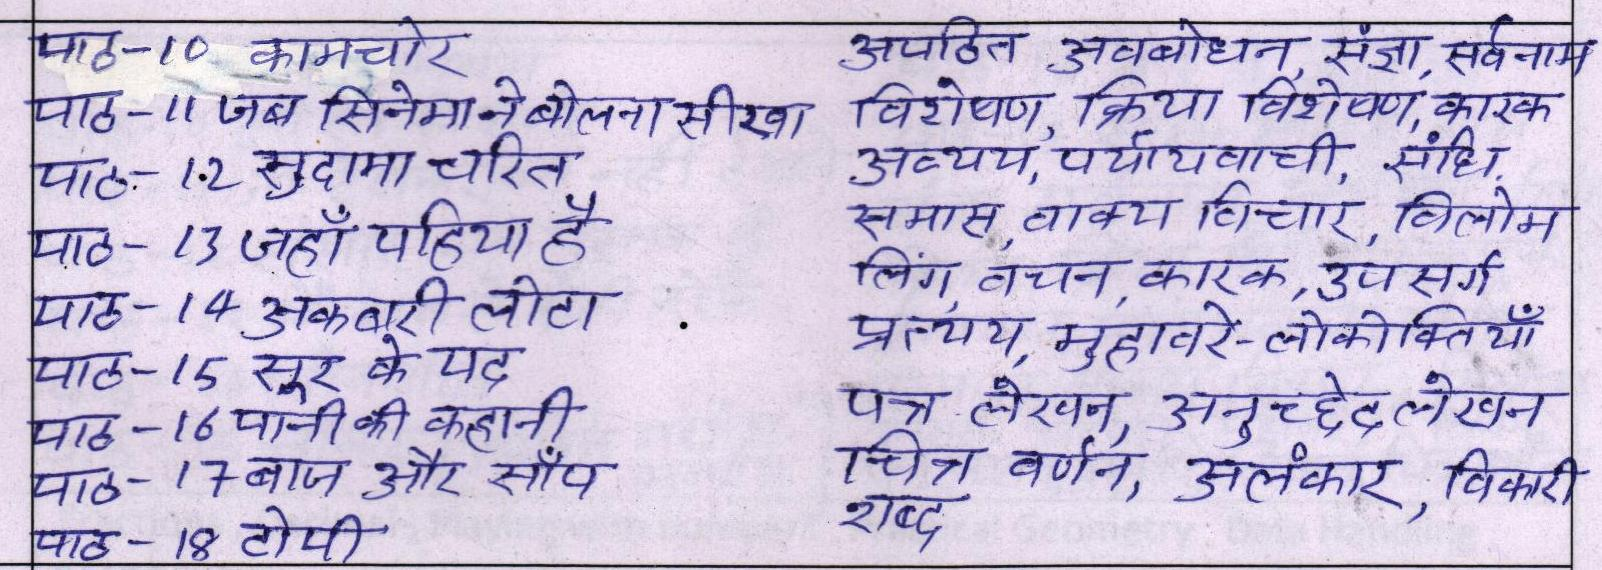 पाठ-10 कामचोर
पाठ-11 जब सिनेमा ने बोलना सीखा
पाठ-12 सुदामा चरित
पाठ-13 जहाँ पहिया है
पाठ-14 अकबरी लोटा
पाठ-15 सूर के पद
पाठ-16 पानी की कहानी
पाठ-17 बाज और साँप
पाठ-18 टोपी
अपठित अवबोधन, संज्ञा, सर्वनाम
विशेषण, क्रिया विशेषण, कारक
अव्यय, पर्यायवाची, संधि,
समास, वाक्य विचार, विलोम
लिंग, वचन, कारक, उपसर्ग
प्रत्यय, मुहावरे-लोकोक्तियाँ
पत्र लेखन, अनुच्छेद लेखन
चित्र वर्णन, अलंकार, विकारी
शब्द